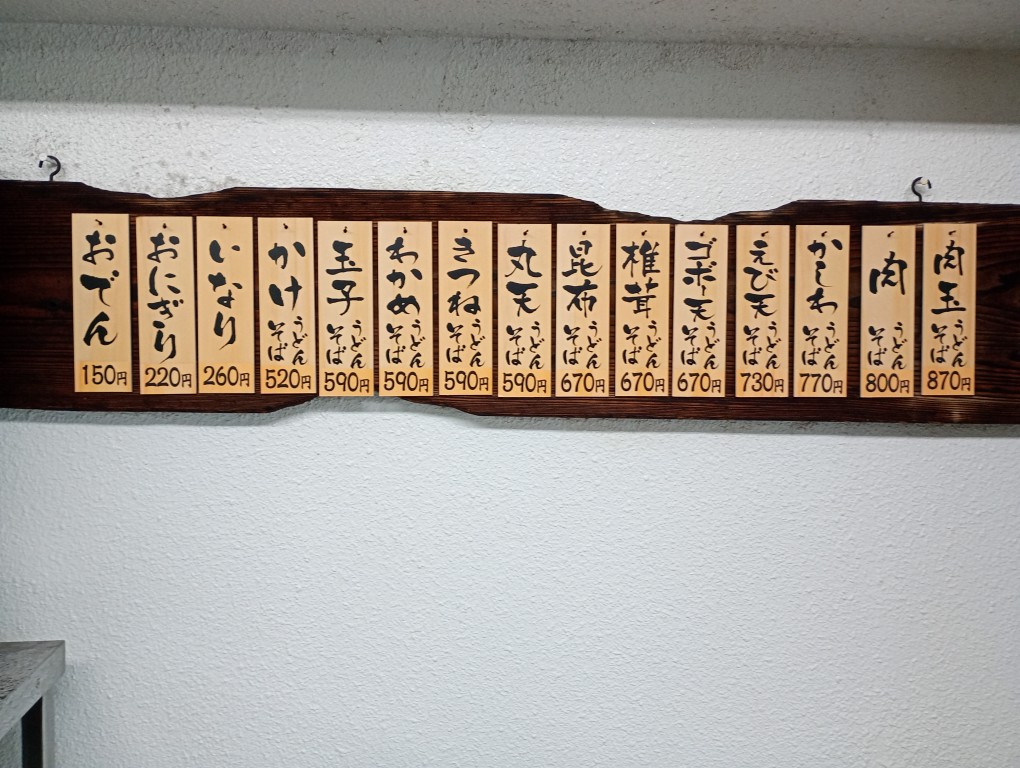 おでん
150円
おにぎり
220円
いなり
260円
かけ
うどん
そば
520円
玉子
うどん
そば
590円
わかめ
うどん
そば
590円
きつね
うどん
そば
590円
丸天
うどん
そば
590円
昆布
うどん
そば
670円
椎茸
うどん
そば
670円
ゴボー天
うどん
そば
670円
えび天
うどん
そば
730円
かしわ
うどん
そば
770円
肉
うどん
そば
800円
肉玉
うどん
そば
870円